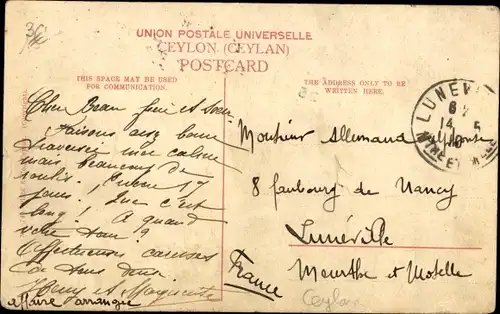 UNION POSTALE UNIVERSELLE
CEYLON (CEYLAN)
POSTCARD
THIS SPACE MAY BE USED
FOR COMMUNICATION.
THE ADDRESS ONLY TO BE
WRITTEN HERE.
LUNEV
14 5
MTHE ET M
Cher Beau frère et Soeur
Faisons assez bonne
traversée mer calme
mais beaucoup de
roulis. Encore 17
jours. Que c'est
long! A quand
votre tour?
Affectueuses caresses
de tous deux
Henry et Marguerite
affaire arrangée
Monsieur Allemand Alphonse
8 faubourg de Nancy
Lunéville
Meurthe et Moselle
France
Ceylan